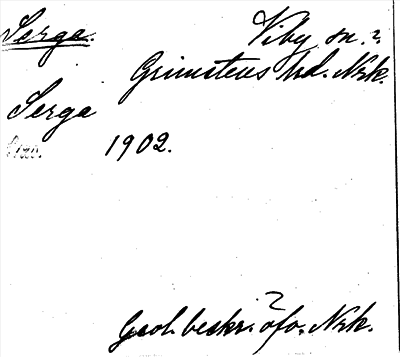 Serga. Viby sn. 2.
Grimstens hd. Nrk.
Serga
1902.
Geol. beskr. öfv. Nrk.